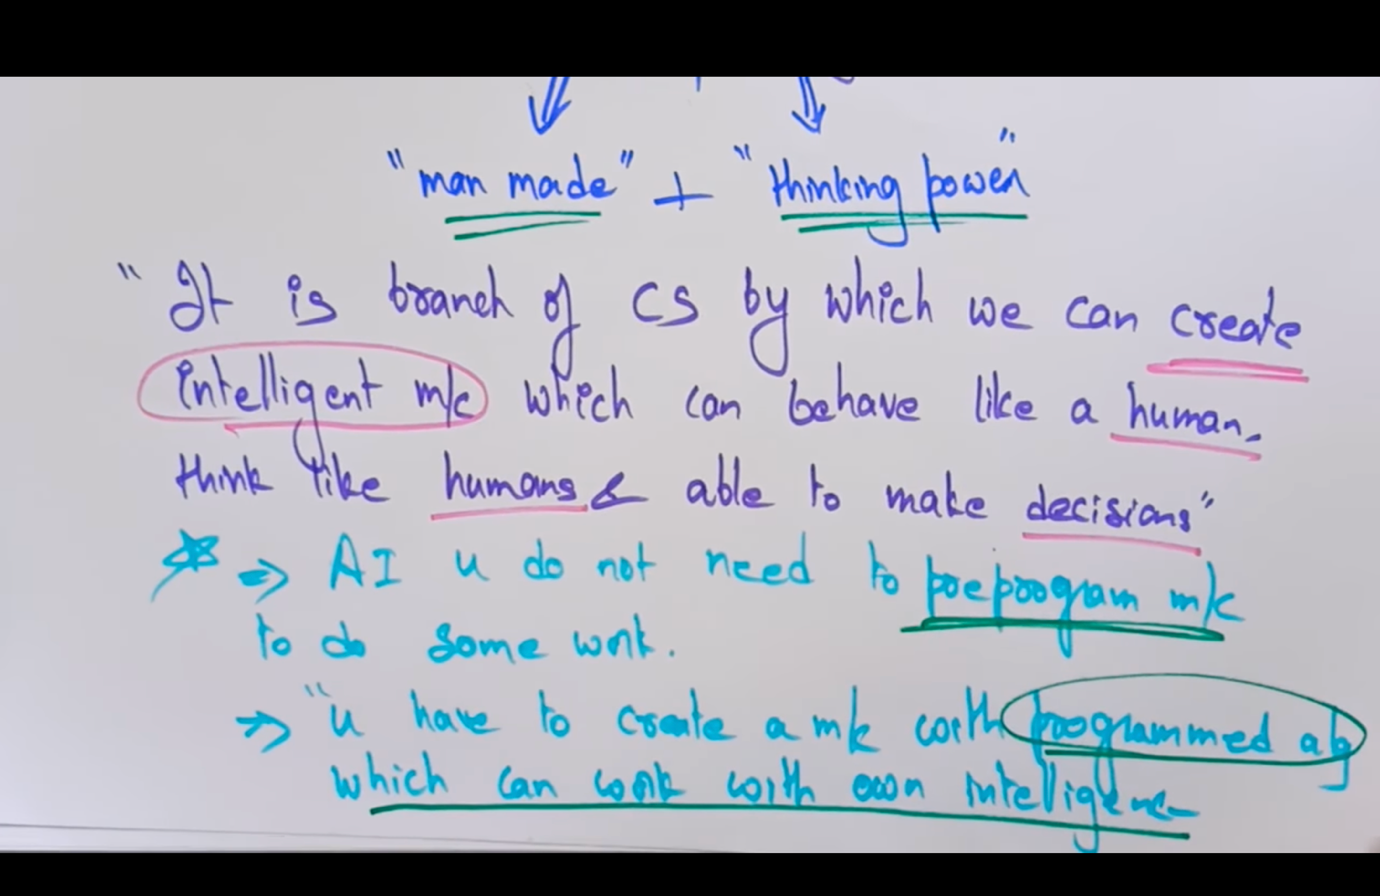 "man made" + "thinking power"
"It is branch of CS by which we can create
intelligent m/c which can behave like a human,
think like humans & able to make decisions"
⇒ AI u do not need to preprogram m/c
to do some work.
⇒ "u have to create a m/c with programmed alg
which can work with own intelligence